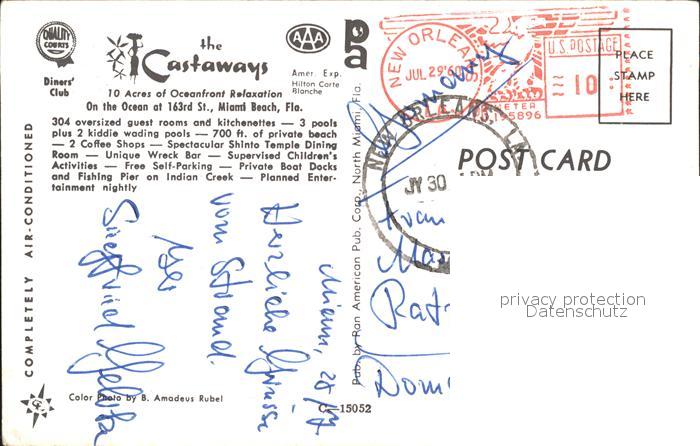 QUALITY
COURTS
Diners'
Club
the
Castaways
AAA
Amer. Exp.
Hilton Carte
Blanche
10 Acres of Oceanfront Relaxation
On the Ocean at 163rd St., Miami Beach, Fla.
304 oversized guest rooms and kitchenettes — 3 pools
plus 2 kiddie wading pools — 700 ft. of private beach
— 2 Coffee Shops — Spectacular Shinto Temple Dining
Room — Unique Wreck Bar — Supervised Children's
Activities — Free Self-Parking — Private Boat Docks
and Fishing Pier on Indian Creek — Planned Enter-
tainment nightly
COMPLETELY AIR-CONDITIONED
Miami,
Herzliche Grüsse
vom Strand.
Color Photo by B. Amadeus Rubel
C—15052
Pub. by Pan American Pub. Corp., North Miami, Fla.
pa
NEW ORLEANS
JUL 29'60
U.S. POSTAGE
10
METER
PLACE
STAMP
HERE
NEW ORLEANS, LA
JY 30
POST CARD
Germany
Frau
privacy protection
Datenschutz